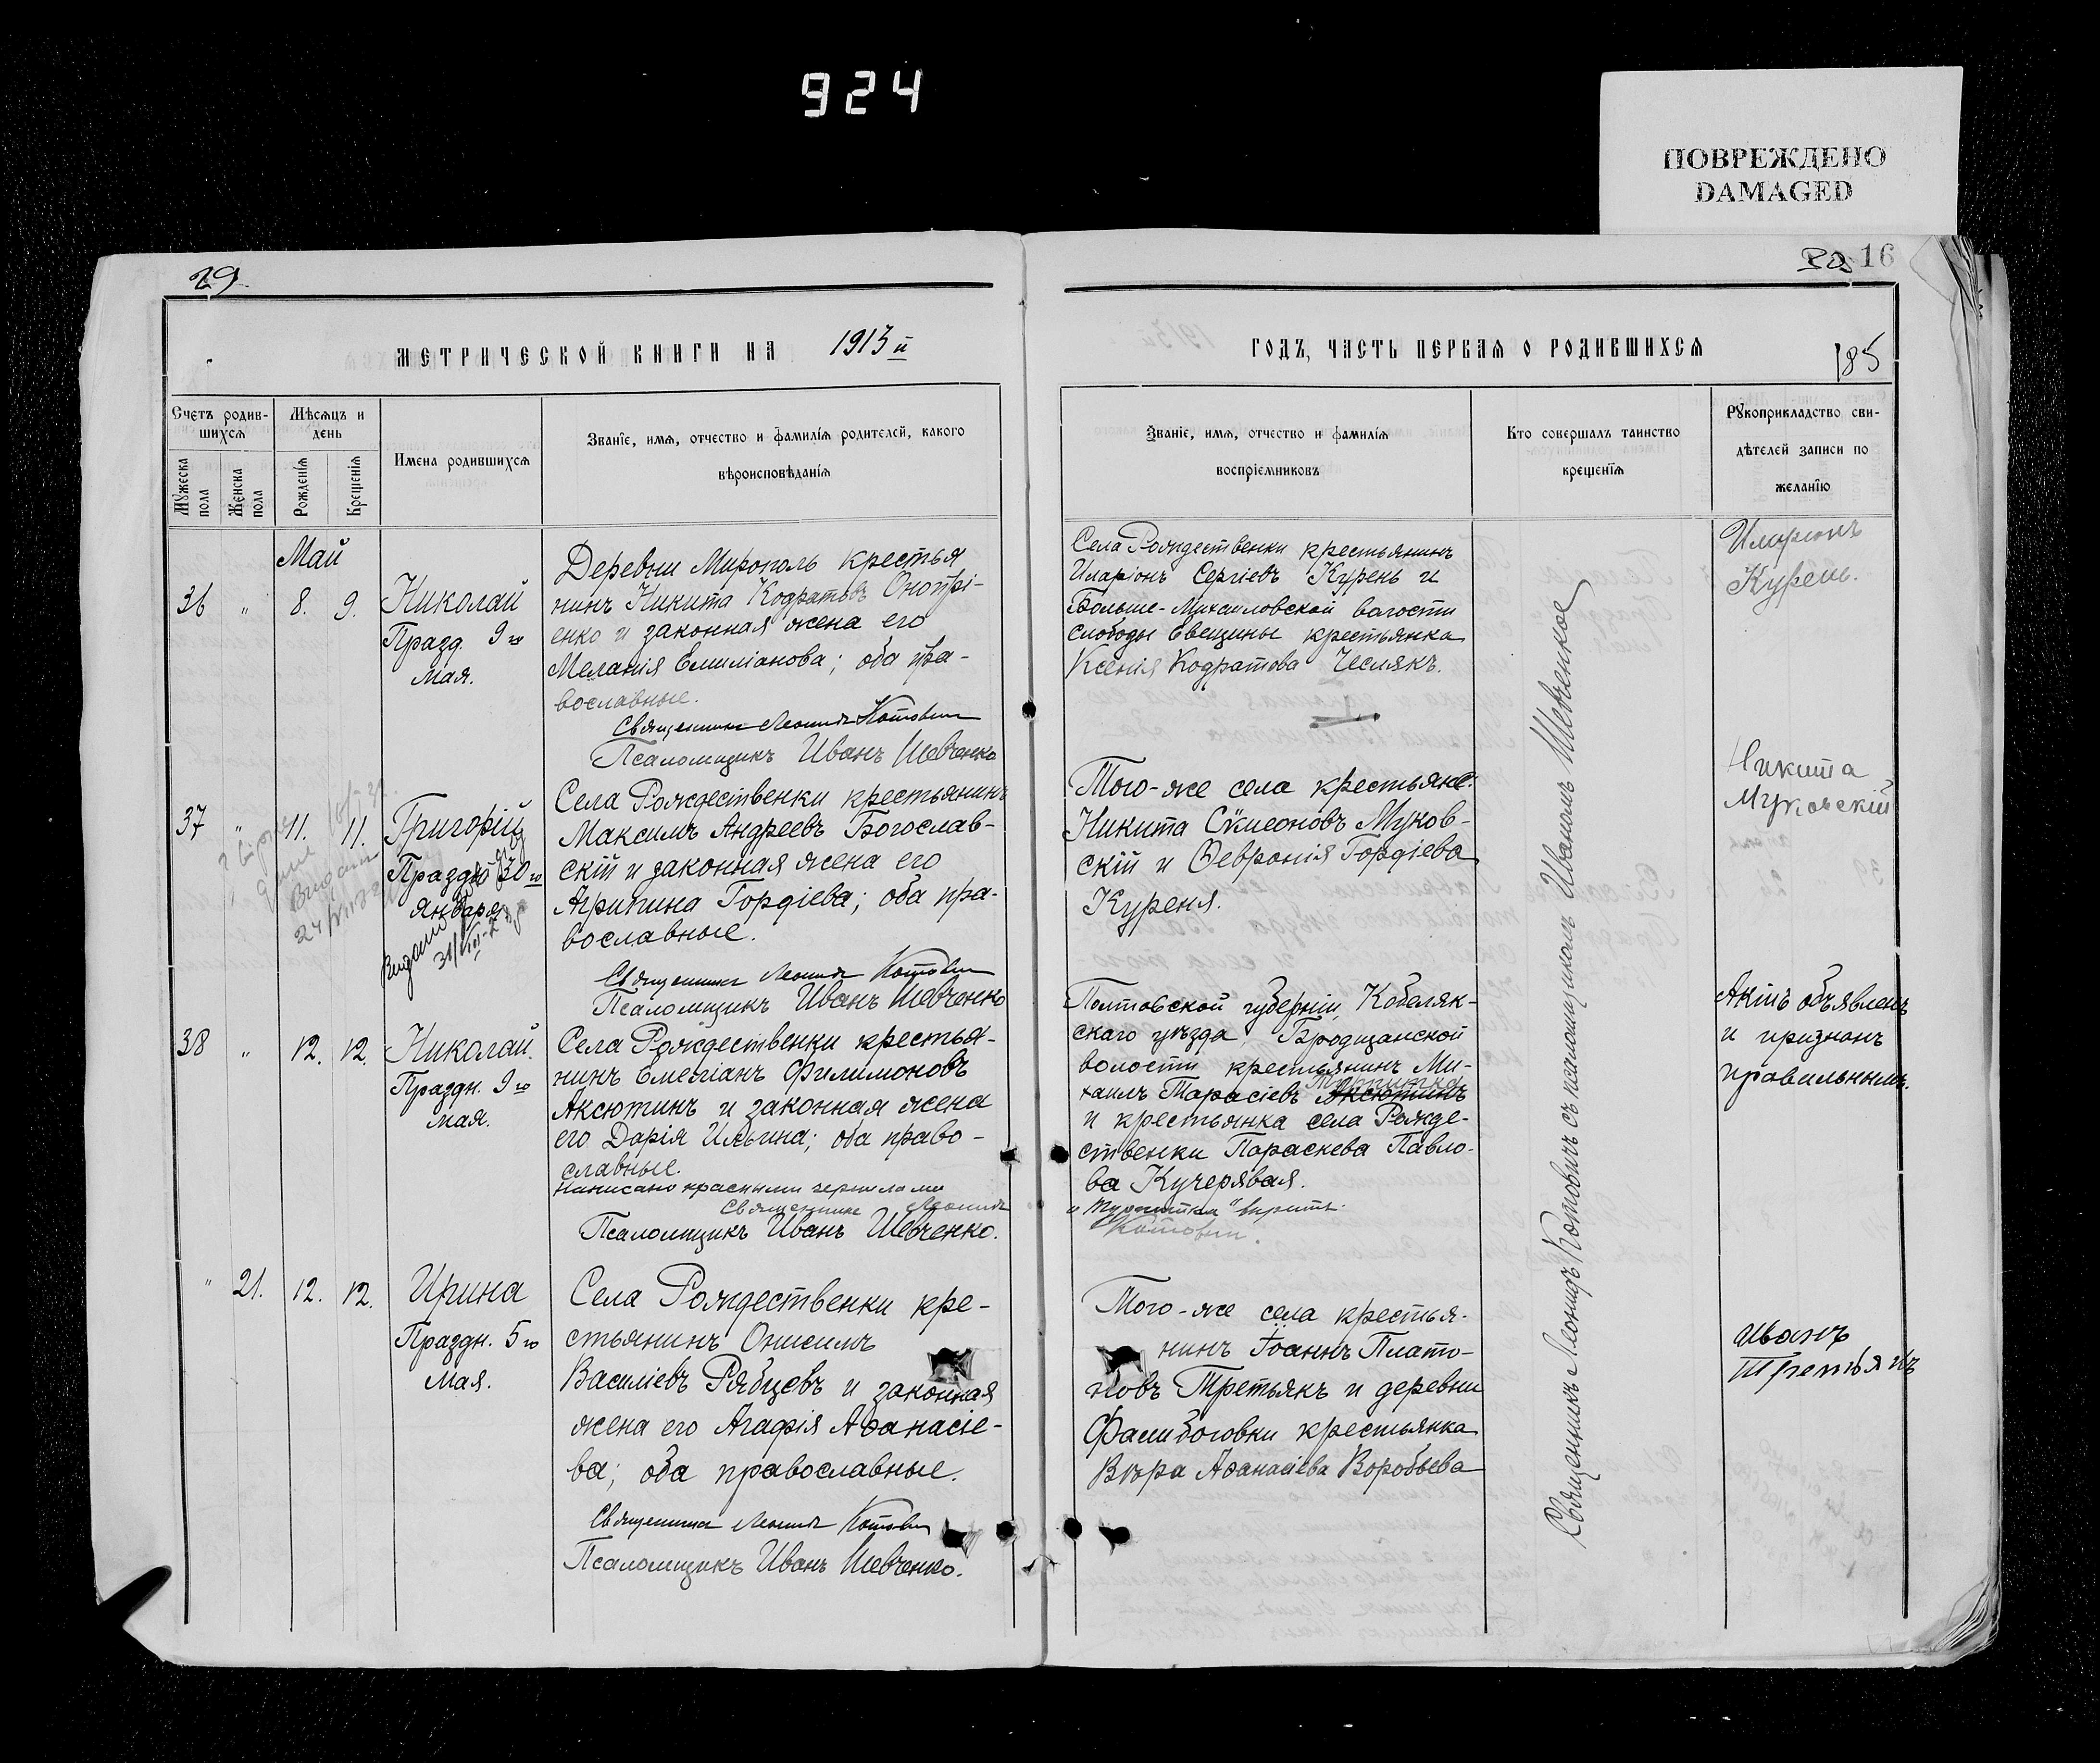 924
ПОВРЕЖДЕНО
DAMAGED
29
16
МЕТРИЧЕСКОЙ КНИГИ НА 1913й
ГОДЪ, ЧАСТЬ ПЕРВАЯ О РОДИВШИХСЯ
185
Счетъ родив-
шихся
Мѣсяцъ и
день
Мужеска
пола
Женска
пола
Рожденія
Крещенія
Имена родившихся
Званіе, имя, отчество и фамилія родителей, какого
вѣроисповѣданія
Званіе, имя, отчество и фамилія
воспріемниковъ
Кто совершалъ таинство
крещенія
Рукоприкладство сви-
дѣтелей записи по
желанію
Май
36 " 8. 9.
Николай
Празд. 9го
мая.
Деревни Мирополь крестья
нинъ Никита Кодратьевъ Онопрі-
енко и законная жена его
Меланія Емиліанова; оба пра-
вославные.
Священникъ Леонидъ Котовичъ
Псаломщикъ Иванъ Шевченко
Села Рождественки крестьянинъ
Иларіонъ Сергіевъ Курень и
Больше-Михаиловской волости
слободы Евещины крестьянка
Ксенія Кодратова Чеслякъ.
Иларіонъ
Курень.
37 " 11. 11.
Григорій
Праздн 30го
Января
24/VIII
31/VIII
Села Рождественки крестьянинъ
Максимъ Андреевъ Богослав-
скій и законная жена его
Агрипина Гордіева; оба пра-
вославные.
Священникъ Леонидъ Котовичъ
Псаломщикъ Иванъ Шевченко
Того-же села крестьяне:
Никита Сѵмеоновъ Муков-
скій и Ѳевронія Гордіева
Куреня.
Никита
Муковскій
38 " 12. 12.
Николай.
Праздн. 9го
мая.
Села Рождественки крестья-
нинъ Емеліанъ Филимоновъ
Аксютинъ и законная жена
его Дарія Ильина; оба право-
славные.
Написано красными чернилами
Священникъ Леонидъ
Псаломщикъ Иванъ Шевченко.
Полтовской губерніи, Кобеляк-
скаго уѣзда Бродщанской
волости крестьянинъ Ми-
хаилъ Тарасіевъ Аксютинъ
и крестьянка села Рожде-
ственки Параскева Павло-
ва Кучерявая.
вѣрить.
Котовичъ.
Актъ объявленъ
и признанъ
правильнымъ.
" 21. 12. 12.
Ирина
Праздн. 5го
мая.
Села Рождественки кре-
стьянинъ Онисимъ
Василіевъ Рябцевъ и законная
жена его Агафія Аѳанасіе-
ва; оба православные.
Священникъ Леонидъ Котовичъ
Псаломщикъ Иванъ Шевченко.
Того-же села крестья-
нинъ Іоаннъ Плато-
новъ Третьякъ и деревни
крестьянка
Вѣра Аѳанасіева Воробьева
Иванъ
Третьякъ
Священникъ Леонидъ Котовичъ съ псаломщикомъ Иваномъ Шевченкою